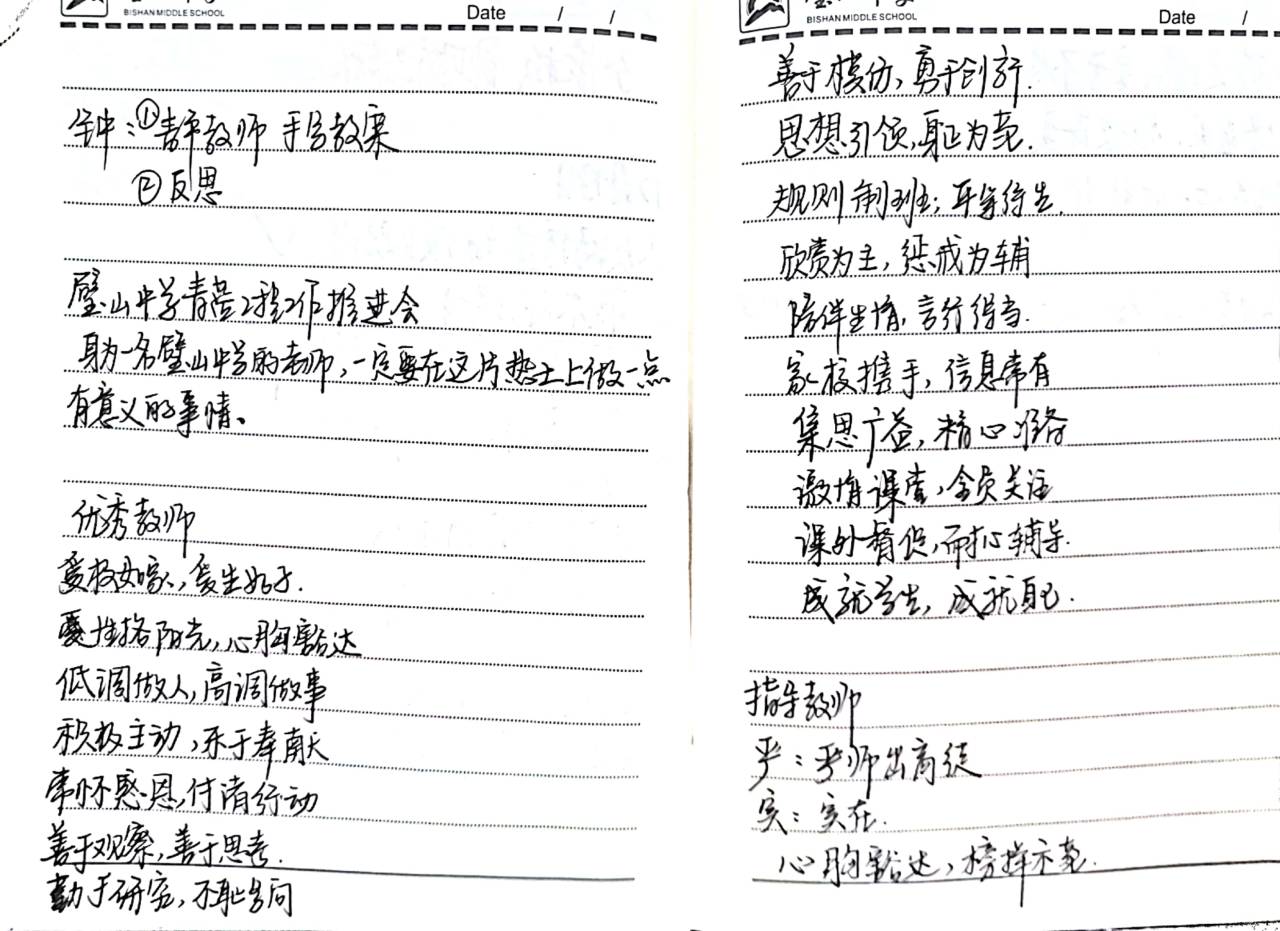 BISHAN MIDDLE SCHOOL
Date / /
①青年教师 手写教案
②反思
璧山中学青蓝工程工作推进会
身为一名璧山中学的老师,一定要在这片热土上做一点
有意义的事情、
优秀教师
爱校如家,爱生如子.
性格阳光,心胸豁达
低调做人,高调做事
积极主动,乐于奉献
常怀感恩,付诸行动
善于观察,善于思考.
勤于研究,不耻多问
BISHAN MIDDLE SCHOOL
Date /
善于模仿,勇于创新.
思想引领,身正为范.
规则制班;
欣赏为主,惩戒为辅
陪伴生情,言行得当.
家校携手,信息常有
集思广益,精心准备
激情课堂,全员关注
课外督促,耐心辅导.
成就学生,成就自己.
指导教师
严:严师出高徒
实:实在.
心胸豁达,榜样示范.